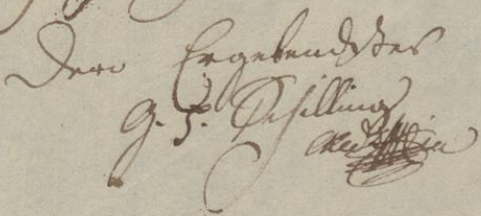 Dero Ergebendster
G. F. Schilling